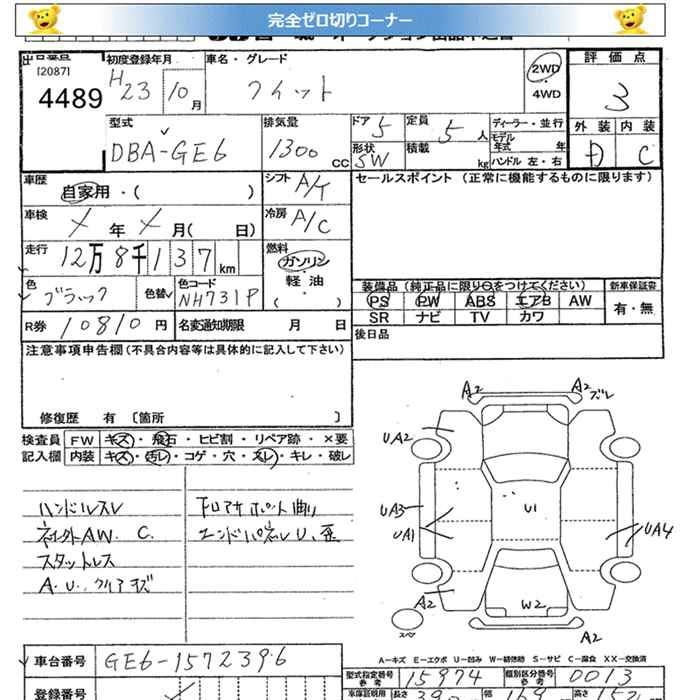 完全ゼロ切りコーナー
[2087]
4489
初度登録年月
H23 10月
車名・グレード
フィット
2WD
・
4WD
評価点
3
外装 内装
D C
型式
DBA-GE6
排気量
1300 CC
ドア 5
形状 SW
定員 5人
積載 kg
ディーラー・並行
モデル年式 年
ハンドル 左・右
車歴
自家用・( )
シフト A/T
セールスポイント (正常に機能するものに限ります)
車検
年 月( 日)
冷房 A/C
走行
12万8千137km
燃料
ガソリン
・
軽油
( )
色
ブラック
色替
色コード
NH731P
装備品 (純正品に限り○をつけてください)
新車保証書
PS PW ABS エアB AW
SR ナビ TV カワ
有・無
R券 10810円
名変通知期限 月 日
後日品
注意事項申告欄 (不具合内容等は具体的に記入して下さい)
修復歴 有 [箇所 ]
検査員 FW キズ・飛石・ヒビ割・リペア跡・×要
記入欄 内装 キズ・汚レ・コゲ・穴・スレ・キレ・破レ
ハンドルスレ
社外AW. C.
スタットレス
A.U.クリアキズ
下回アサポート曲り
エンドパネルU、歪
A2
A2 ズレ
UA2
UA3
UA1
U1
UA4
A2
W2
A2
スペア
A-キズ E-エクボ U-凹み W-補修跡 S-サビ C-腐食 XX-交換済
車台番号 GE6-1572396
型式指定番号 参考 15974
類別区分番号 参考 0013
登録番号
長さ 390
幅 169
高さ 152